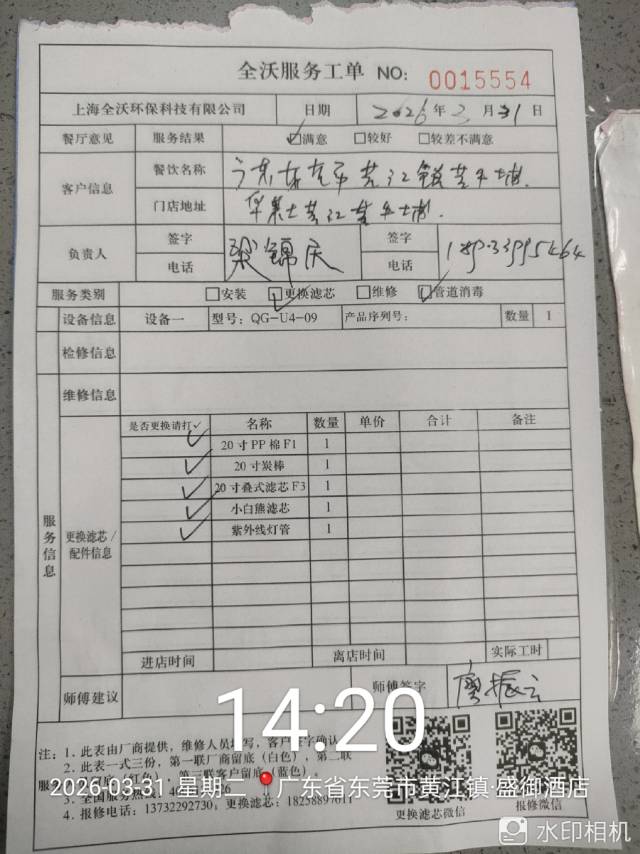 全沃服务工单 NO: 0015554
上海全沃环保科技有限公司 日期 2026年3月31日
餐厅意见 服务结果 ☑满意 □较好 □较差不满意
客户信息 餐饮名称 广东东莞市黄江镇黄牛埔.
门店地址 黄江黄牛埔.
负责人 签字 梁锦庆 签字
电话 电话
服务类别 □安装 ☑更换滤芯 □维修 ☑管道消毒
设备信息 设备一 型号: QG-U4-09 产品序列号: 数量 1
检修信息
维修信息
服务信息 更换滤芯/配件信息
是否更换请打✓ 名称 数量 单价 合计 备注
✓ 20寸PP棉F1 1
✓ 20寸炭棒 1
✓ 20寸叠式滤芯F3 1
✓ 小白熊滤芯 1
✓ 紫外线灯管 1
进店时间 离店时间 实际工时
师傅建议 师傅签字 廖振云
14:20
注: 1. 此表由厂商提供, 维修人员填写, 客户签字确认
2. 此表一式三份, 第一联厂商留底(白色), 第二联
服 底(红色), 第三联客户留底(蓝色).
2026-03-31 星期二 广东省东莞市黄江镇·盛御酒店
3. 全国服务热
4. 报修电话: 13732292730; 更换滤芯: 18258897611
更换滤芯微信 报修微信
水印相机